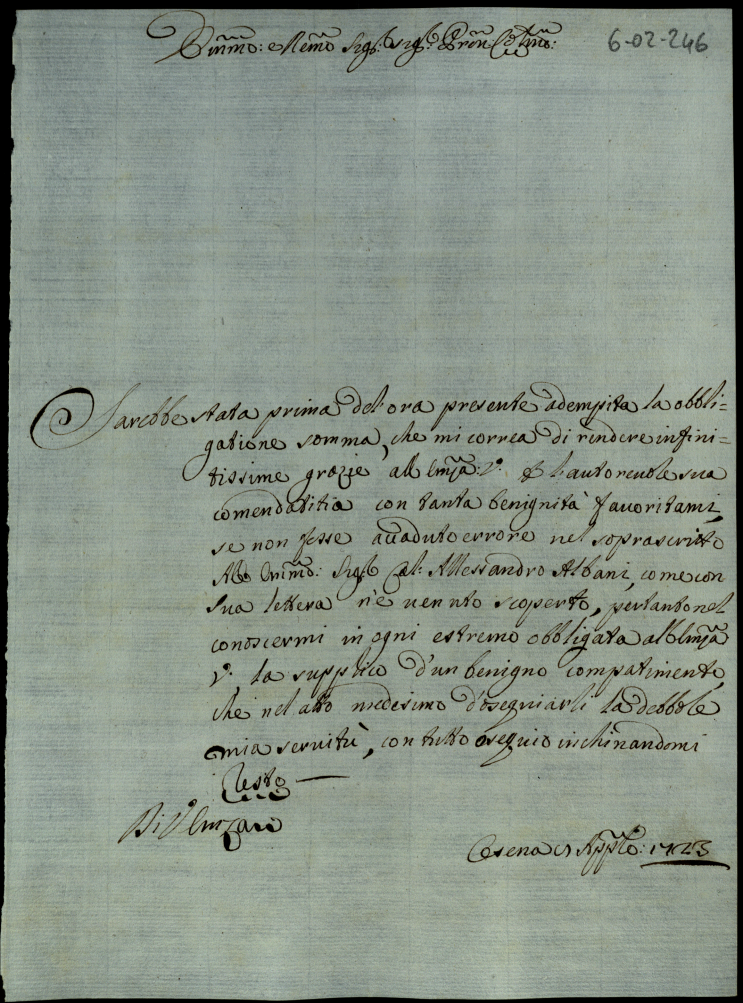 Eminmo: e Remo Sigr. sigr. Pron. Colmo:
6-02-246
Sarebbe stata prima del'ora presente adempita la obbli-
gatione somma, che mi correa di rendere infini-
tissime grazie all' Eminza: V. l'autoreuole sua
comendatitia con tanta benignità fauoritami,
se non fosse accaduto errore nel soprascritto
Eminmo: Sigr. Cal: Allessandro Albani, come con
sua lettera n'è uenuto scoperto, pertanto nel
conoscermi in ogni estremo obbligata all' Eminza
V. la supplico d'un benigno compatimento,
che nel atto medesimo d'osequiarli la debbole
mia seruitù, con tutto osequio inchinandomi
resto —
Di V. Eminza
Cesena Applo: 1723